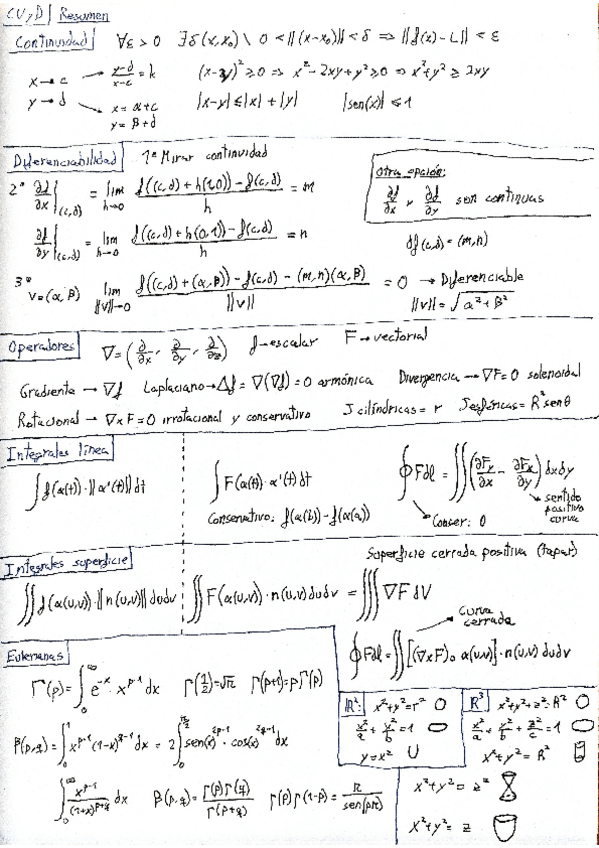 CV, D | Resumen
Continuidad ∀ε > 0 ∃δ(x,x₀) \ 0 < ||(x-x₀)|| < δ ⇒ ||f(x) - L|| < ε
x → c → (y-d)/(x-c) = k (x-y)² ≥ 0 ⇒ x² - 2xy + y² ≥ 0 ⇒ x² + y² ≥ 2xy
y → d → x = α + c |x-y| ≤ |x| + |y| |sen(x)| ≤ 1
y = β + d
Diferenciabilidad 1º Mirar continuidad
Otra opción:
∂f/∂x y ∂f/∂y son continuas
2º ∂f/∂x|(c,d) = lim h→0 (f((c,d) + h(1,0)) - f(c,d))/h = m
∂f/∂y|(c,d) = lim h→0 (f((c,d) + h(0,1)) - f(c,d))/h = n df(c,d) = (m,n)
3º v = (α, β) lim ||v||→0 (f((c,d) + (α,β)) - f(c,d) - (m,n)(α,β))/||v|| = 0 → Diferenciable
||v|| = √(α² + β²)
Operadores ∇ = (∂/∂x, ∂/∂y, ∂/∂z) f → escalar F → vectorial
Gradiente → ∇f Laplaciano → Δf = ∇(∇f) = 0 armónica Divergencia → ∇F = 0 solenoidal
Rotacional → ∇xF = 0 irrotacional y conservativo J cilíndricas = r J esféricas = R² senθ
Integrales línea
∫ f(α(t))·||α'(t)|| dt ∫ F(α(t))·α'(t) dt ∮ F dl = ∬ (∂Fy/∂x - ∂Fx/∂y) dxdy
Conservativo: f(α(b)) - f(α(a)) Conser: 0 sentido positivo curva
Integrales superficie Superficie cerrada positiva (tapar)
∬ f(α(u,v))·||n(u,v)|| dudv ∬ F(α(u,v))·n(u,v) dudv = ∭ ∇F dV
Curva cerrada
∮ F dl = ∬ [(∇xF)∘α(u,v)]·n(u,v) dudv
Eulerianas
Γ(p) = ∫₀^∞ e^-x · x^(p-1) dx Γ(1/2) = √π Γ(p+1) = pΓ(p)
β(p,q) = ∫₀¹ x^(p-1) (1-x)^(q-1) dx = 2∫₀^(π/2) sen(x)^(2p-1) · cos(x)^(2q-1) dx
∫₀^∞ x^(p-1)/(1+x)^(p+q) dx β(p,q) = Γ(p)Γ(q)/Γ(p+q) Γ(p)Γ(1-p) = π/sen(pπ)
ℝ²: x² + y² = r²
x²/a + y²/b = 1
y = x²
ℝ³ x² + y² + z² = R²
x²/a + y²/b + z²/c = 1
x² + y² = R²
x² + y² = z²
x² + y² = z